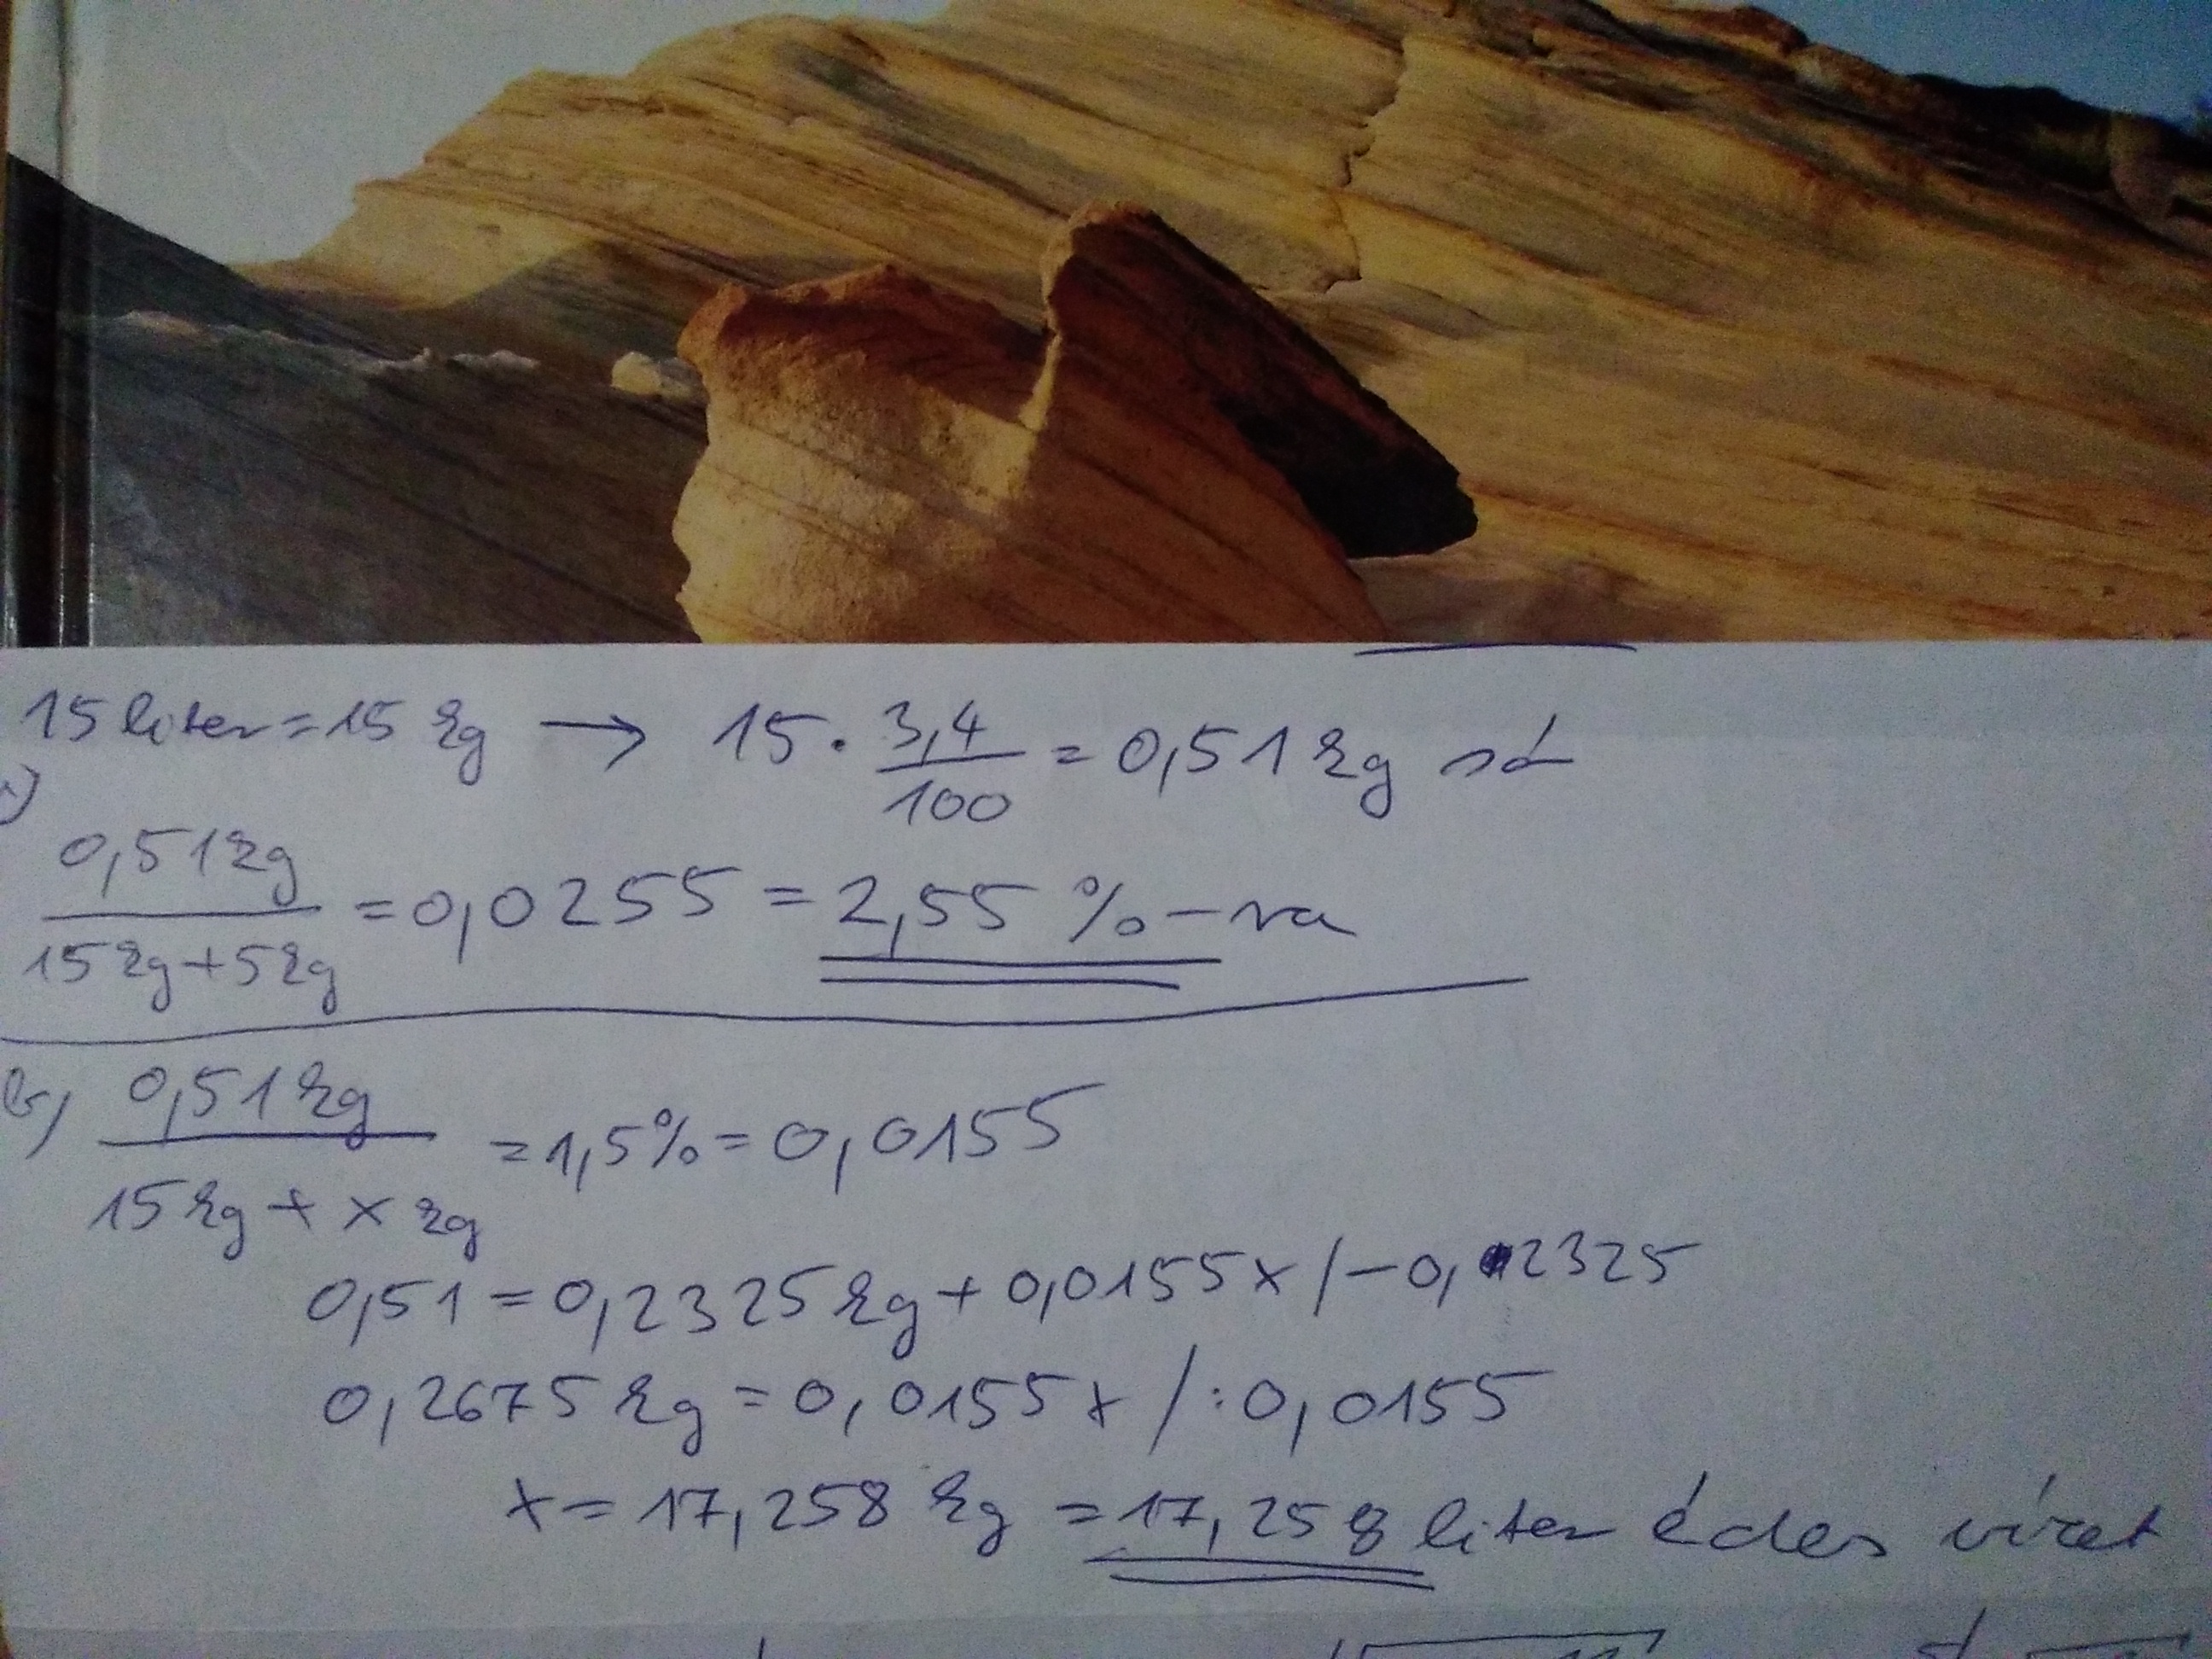 15 liter = 15 kg → 15 · 3,4/100 = 0,51 kg só
0,51 kg / 15 kg + 5 kg = 0,0255 = 2,55 % - ra
b) 0,51 kg / 15 kg + x kg = 1,5% = 0,0155
0,51 = 0,2325 kg + 0,0155x /-0,2325
0,2675 kg = 0,0155x /:0,0155
x = 17,258 kg = 17,258 liter édes vizet